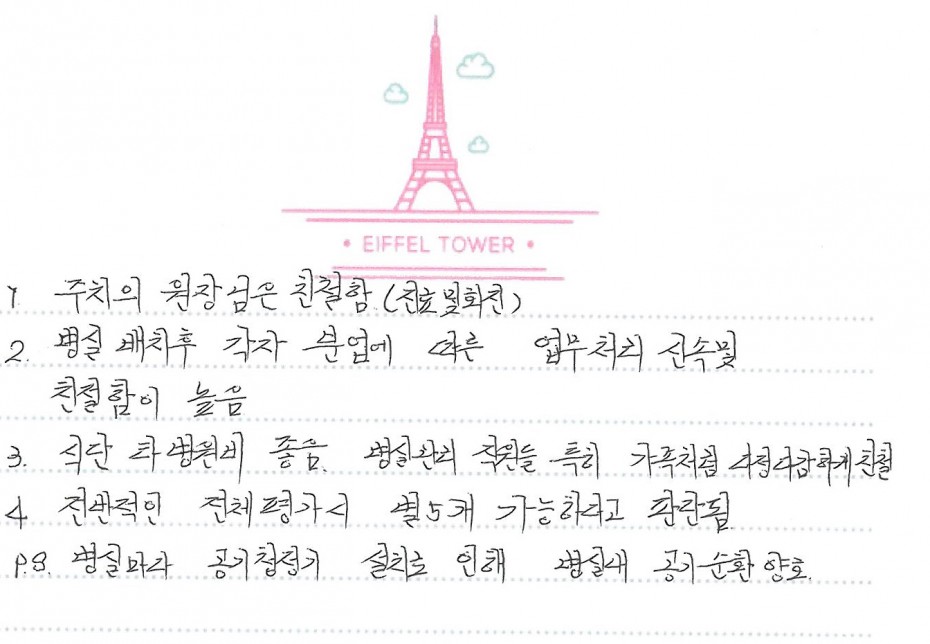 • EIFFEL TOWER •
1. 주치의 원장님은 친절함.(진료및회진)
2. 병실 배치후 각자 분업에 따른 업무처리 신속및
친절함이 높음
3. 식단 타 병원비 좋음. 병실관리 직원들 특히 가족처럼 다정다감하게 친절
4. 전반적인 전체평가시 별5개 가능하다고 판단됨.
P.S. 병실마다 공기청정기 설치로 인해 병실내 공기순환 양호.